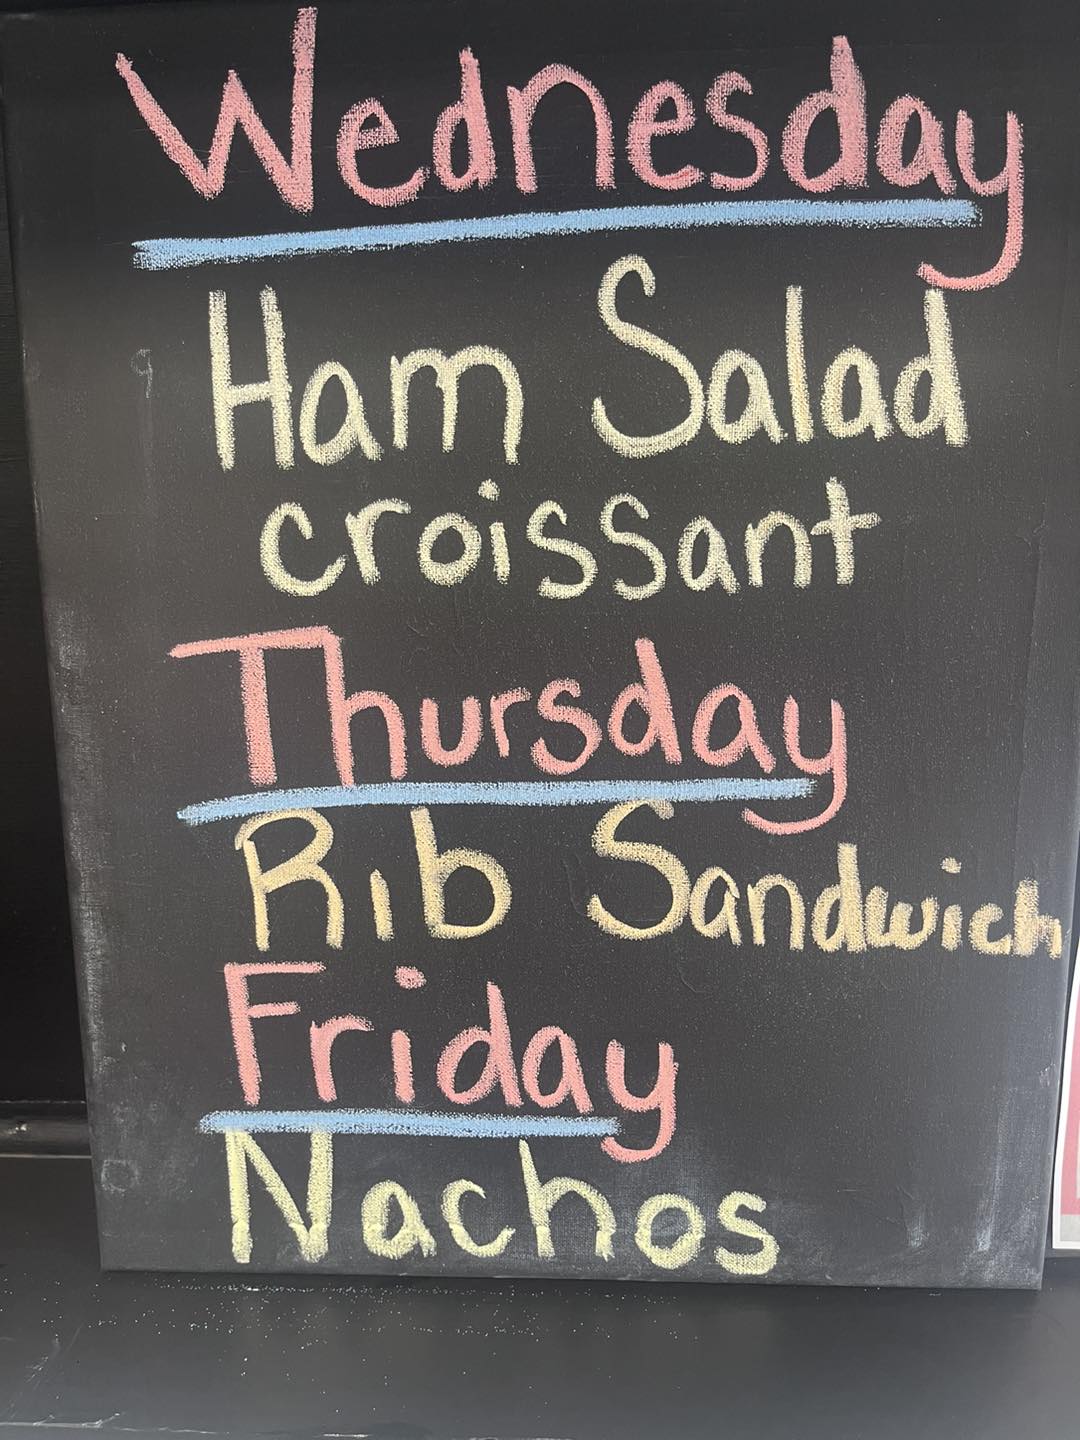 Wednesday
Ham Salad
croissant
Thursday
Rib Sandwich
Friday
Nachos